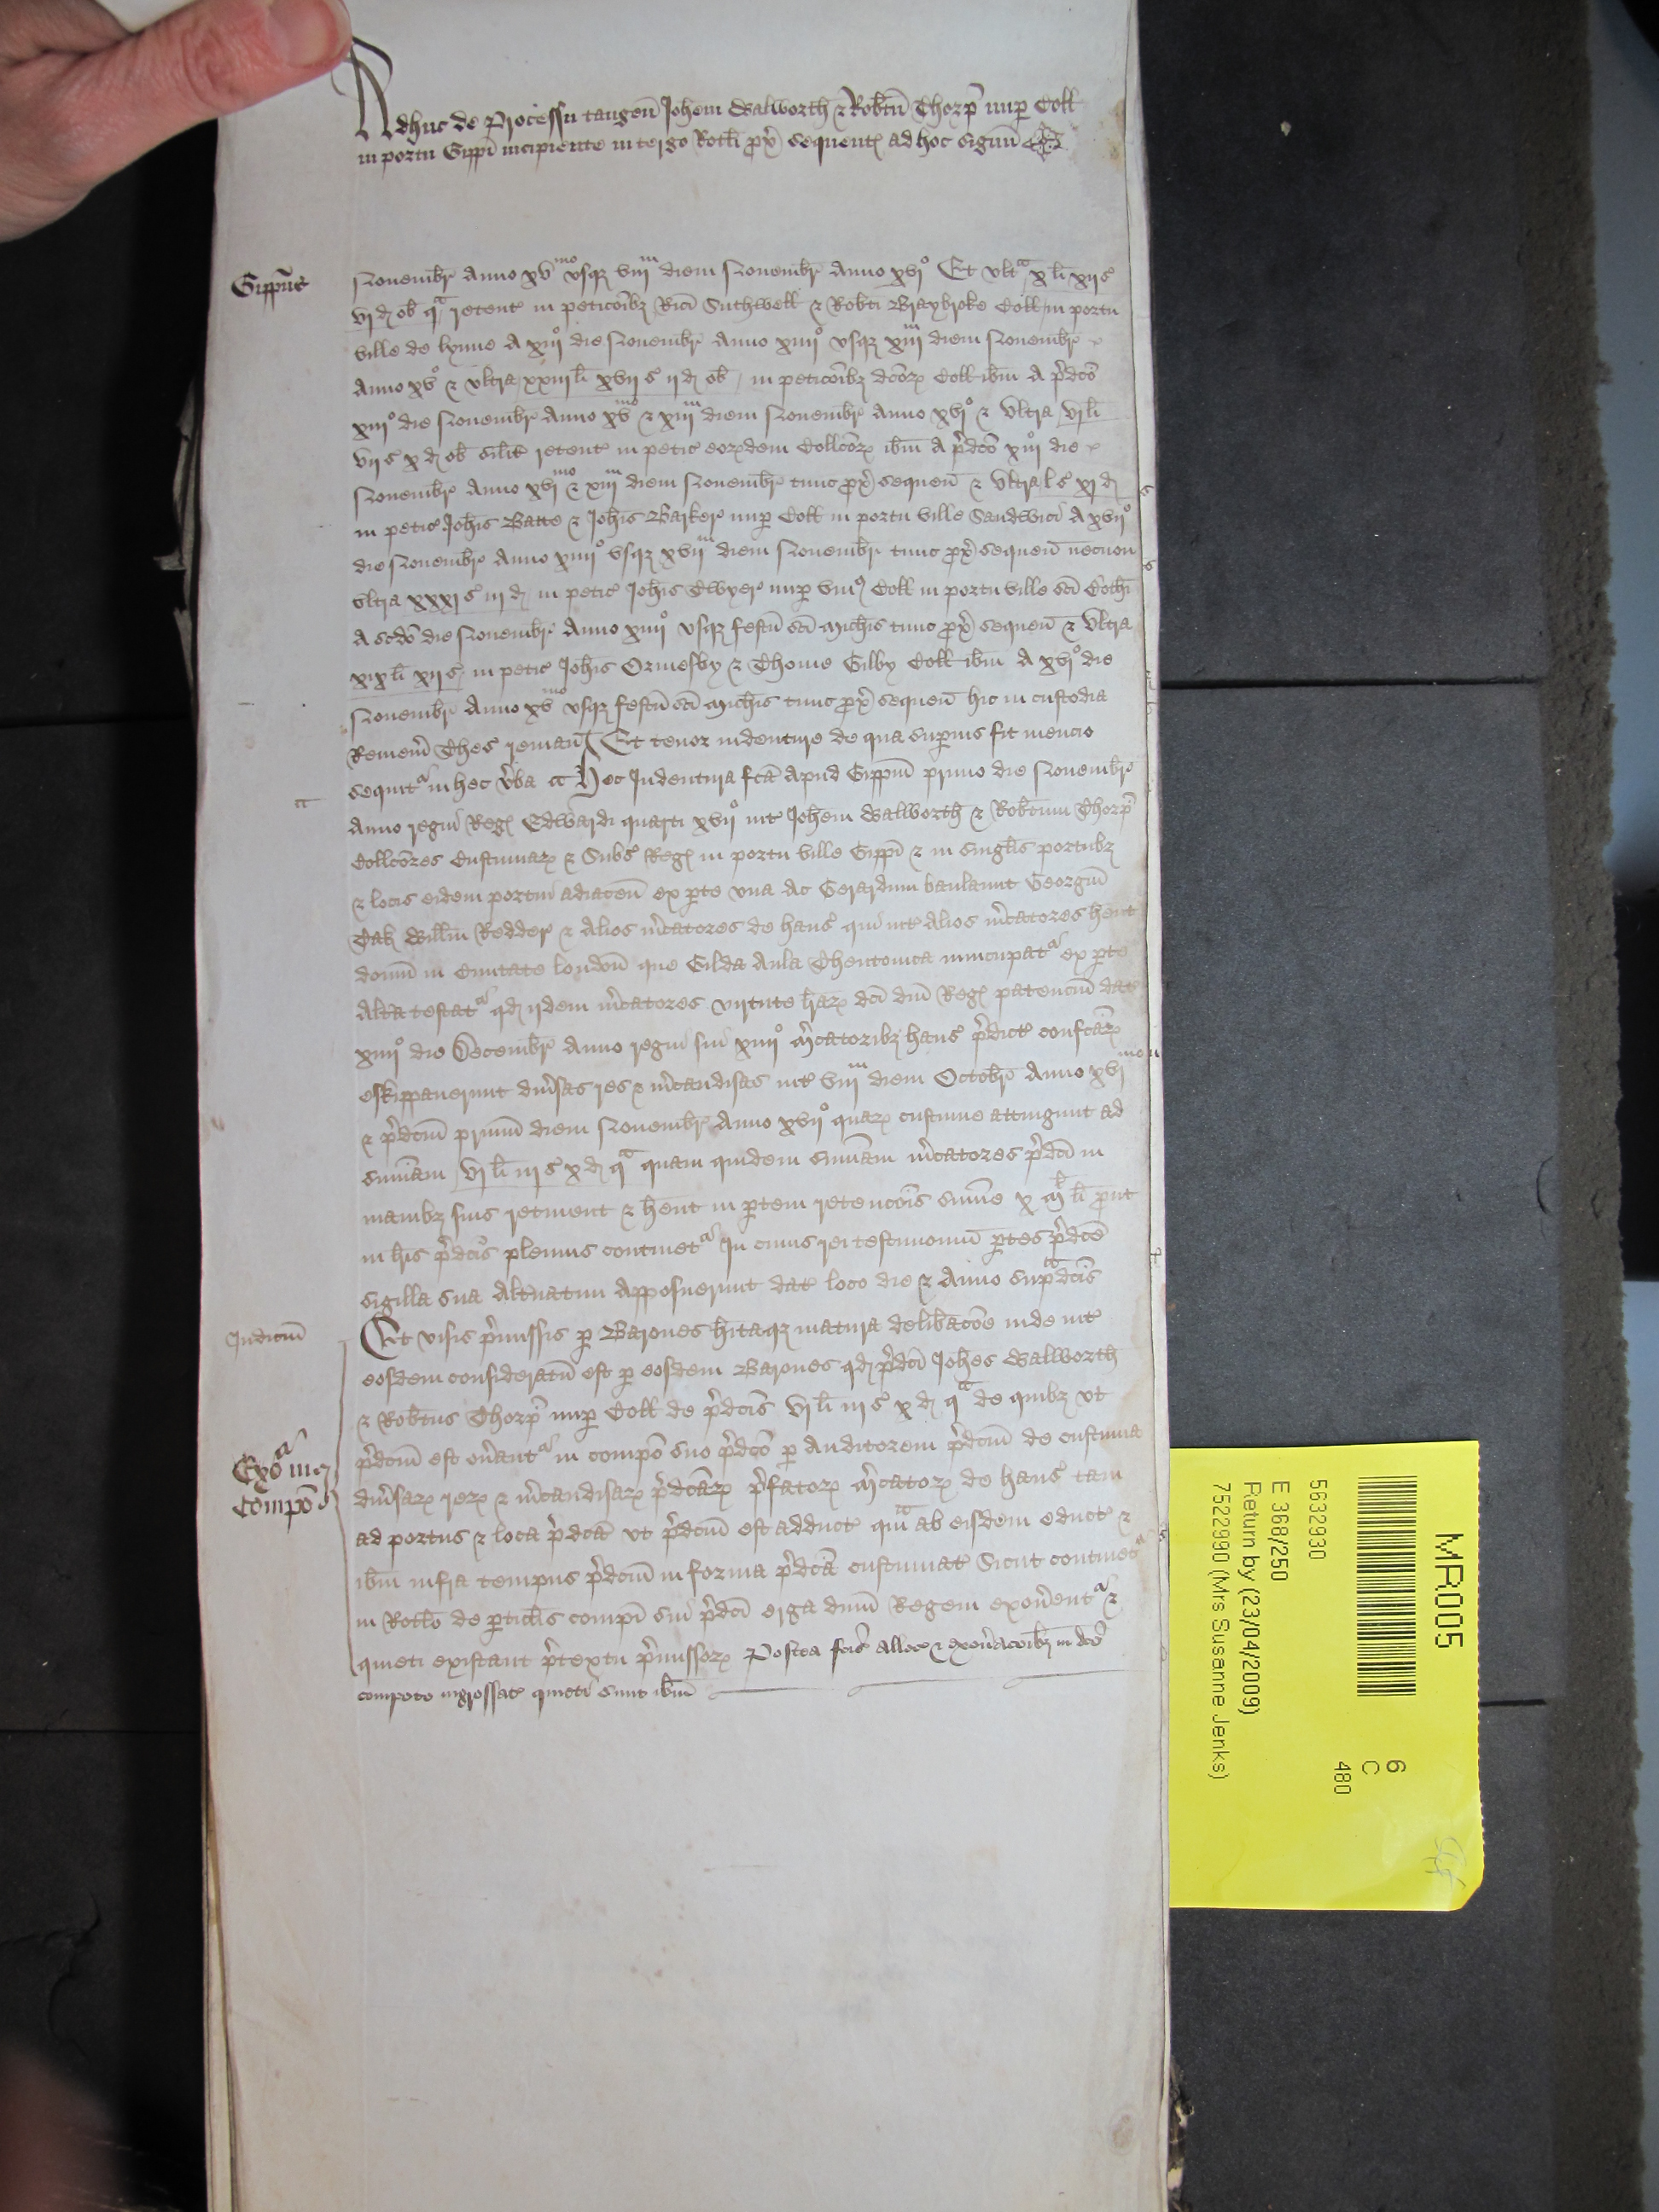 Adhuc de Processu tangen̄ Joh̄em Walworth & Rob̄tu̅ Thorp̄ nup̱ Coll̄
in portu Gippī incipiente in tergo Rotl̄i p̱x̄ sequent̄ ad hoc signu̅
Gippūc̄
Nouembr̄ Anno xvᵐᵒ vsqꝫ viiiᵐ diem Nouembr̄ Anno xvjº Et vltᵃ x li̅ xijs
vj đ ob̄ qᵃ retent̄ in peticōibꝫ Ric̄i Suthwell & Rob̄ti Braybroke Coll̄ in portu
ville de lynne A xiijº die Nouembr̄ Anno xiiijº vsqꝫ xiijᵐ diem Nouembr̄
Anno xvº & vltra xxiij li̅ xvij s ij đ ob̄ in peticōibꝫ dc̄oꝝ Coll̄ ib̄m A p̄dc̄o
xiijº die Nouembr̄ Anno xvᵐᵒ & xiijᵐ diem Nouembr̄ Anno xvjº & vltra vj li̅
vij s x đ ob̄ sil̄it̄ retent̄ in petic̄ eoꝝdem Collc̄oꝝ ib̄m A p̄dc̄o xiijº die
Nouembr̄ Anno xvjᵐᵒ & xiijᵐ diem Nouembr̄ tunc p̱x̄ sequen̄ & vltra l s xj đ
in petic̄ Joh̄is Batte & Joh̄is Barker nup̱ Coll̄ in portu ville Sandwici A xvijº
die Nouembr̄ Anno xiiijº vsqꝫ xvijᵐ diem Nouembr̄ tunc p̱x̄ sequen̄ necnon
vltra xxxj s iij đ in petic̄ Joh̄is Twyer nup̱ vni⁹ Coll̄ in portu ville sc̄i Both̄i
A scd̄o die Nouembr̄ Anno xiiijº vsqꝫ festu̅ sc̄i Mich̄is tunc p̱x̄ sequen̄ & vltra
xix li̅ xij s in petic̄ Joh̄is Ormesby & Thome Gilby Coll̄ ib̄m A xvjº die
Nouembr̄ Anno xvᵐᵒ vsqꝫ festu̅ sc̄i Mich̄is tunc p̱x̄ sequen̄ hic in custodia
Remem̄ Thes̄ reman̄ Et tenor indenture de qua sup̱ius fit mencio
sequitᵃ in hec v̄ba Hec Indentura fc̄a Apud Gippm̄ primo die Nouembr̄
Anno regni Reḡ Edwardi quarti xvijº int̄ Joh̄em Walworth & Rob̄tum Thorp̄
Collc̄ores Custumaꝝ & Subs̄ Reḡ in portu ville Gippī & in singl̄is portubꝫ
& locis eidem portui adiacen̄ ex p̱te vna Ac Gerardum Georgiu̅
Tak Will̄m Redder & Alios m̄catores de hans̄ qui int̄ Alios m̄catores hent
domu̅ in Ciuitate london̄ que Gilda Aula Theutonica nuncupatᵃ ex p̱te
Alt̄a testatᵃ qđ ijdem m̄catores virtute l̄raꝝ dc̄i dn̄i Reḡ patenciu̅ dat̄
xiiijº die Decembr̄ Anno regni sui xiiijº M̄catoribꝫ hans̄ p̄dict̄ confcaꝝ
eskippauerunt diu̅sas res & m̄candisas int̄ viiiᵐ diem Octobr̄ Anno xvjᵐᵒ
& p̄dc̄m primu̅ diem Nouembr̄ Anno xvijº quaꝝ custume attingunt ad
summam vj li̅ iij s x đ qᵃ quam quidem summam m̄catores p̄dc̄i in
manibꝫ suis retinent & hent in p̱tem retenc̄ois sum̄e x Ml̄ li̅ p̱ut
in l̄ris p̄dc̄is plenius continetᵃ In cuius rei testimoniu̅ p̱tes p̄dc̄e
sigilla sua Alt̄natim Apposuerunt dat̄ loco die & Anno sup̱ᵃdc̄is
Judiciu̅
Et visis p̄missis p̱ Barones h̄itaqꝫ matura delib̄ac̄oe inde int̄
eosdem consideratu̅ est p̱ eosdem Barones qđ p̄dc̄i Joh̄es Walworth
& Rob̄tus Thorp̄ nup̱ Coll̄ de p̄dc̄is vj li̅ iij s x đ qᵃ de quibꝫ vt
p̄dc̄m est on̄antᵃ in comp̄o suo p̄dc̄o p̱ Auditorem p̄dc̄m de custuma
Exōᵃ in
compō
diu̅saꝝ reꝝ & m̄candisaꝝ p̄dc̄aꝝ p̄fatoꝝ M̄catoꝝ de hans̄ tam
ad portus & loca p̄dc̄a vt p̄dc̄m est adduct̄ quᵃm ab eisdem educt̄ &
ib̄m infra tempus p̄dc̄m in forma p̄dc̄a custumat̄ Sicut continetᵃ
in Rotl̄o de p̱ticl̄is compī sui p̄dc̄i erga dn̄m Regem exon̄entᵃ &
quieti existant p̄textu p̄missoꝝ Postea fc̄is alloc̄ & exon̄ac̄oibꝫ in dc̄o
compoto ingrossat̄ quieti sunt ib̄m
MR005
5632930
E 368/250
Return by (23/04/2009)
7522990 (Mrs Susanne Jenks)
6
C
480